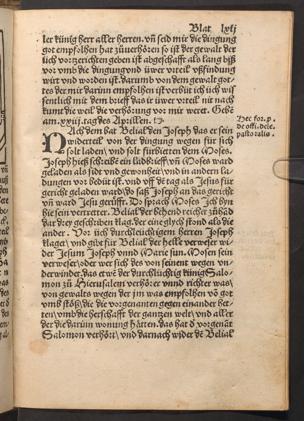 Blat lxij
ler künig herr aller herren. vñ seid mir die dingung
got empfolhen hat zůuerhören so ist der gewalt der
üch vorzeichten geben ist abgeschafft als lang biß
vor vmb die dingung vnd üwer vrteil vßfindung
würt vnd worden ist. darumb von dem gewalt got-
tes der mir darinn empfolhen ist verbüt ich üch wis
sentlich mit dem brieff das ir üwer vrteil nit nach
kumt die weil die verhörung vor mir weret. Gebē
am. xxiij. tag des Aprillen.
Nach dem bat Belial den Joseph das er sein
widerteil von der dingung wegen für sich
solt laden/ vnd solt fürbietten dem Moses.
Joseph hieß schreibē ein ladbrieff/ vñ Moses ward
geladen als sidt vnd gewonheit/ vnd in andern la-
dungen vor bedüt ist. vnd vff dē tag als Jesus für
gericht geladen ward/ do saß Joseph an das gericht
vñ ward Jesu gerüfft. Do sprach Moses Ich byn
hie sein verretter. Belial der behend reichet zůhād
dar drey geschriben klag. der eine glych stond als die
ander. Vor üch durchlüchtigem herren Joseph
klaget/ vnd gibt für Belial der helle verweser wi-
der Jesum Joseph vnnd Marie sun. Moses sein
verweser/ oder wer sich des von seinent wegen vn-
derwindet. das etwē der durchlüchtig künig Salo-
mon zů Hierusalem verhörer vnnd richter was/
von gewalts wegen der jm was empfolhen vō got
vmb stöß/ die die vorgenanten gegen einander het-
ten/ vmb die herschafft der gantzen welt/ vnd aller
der die darinn wonung hatten. das hat ð vorgenāt
Salomon verhört/ vnd darnach wider dē Belial
Hec for. p.
de offi. dele.
pastoralis.